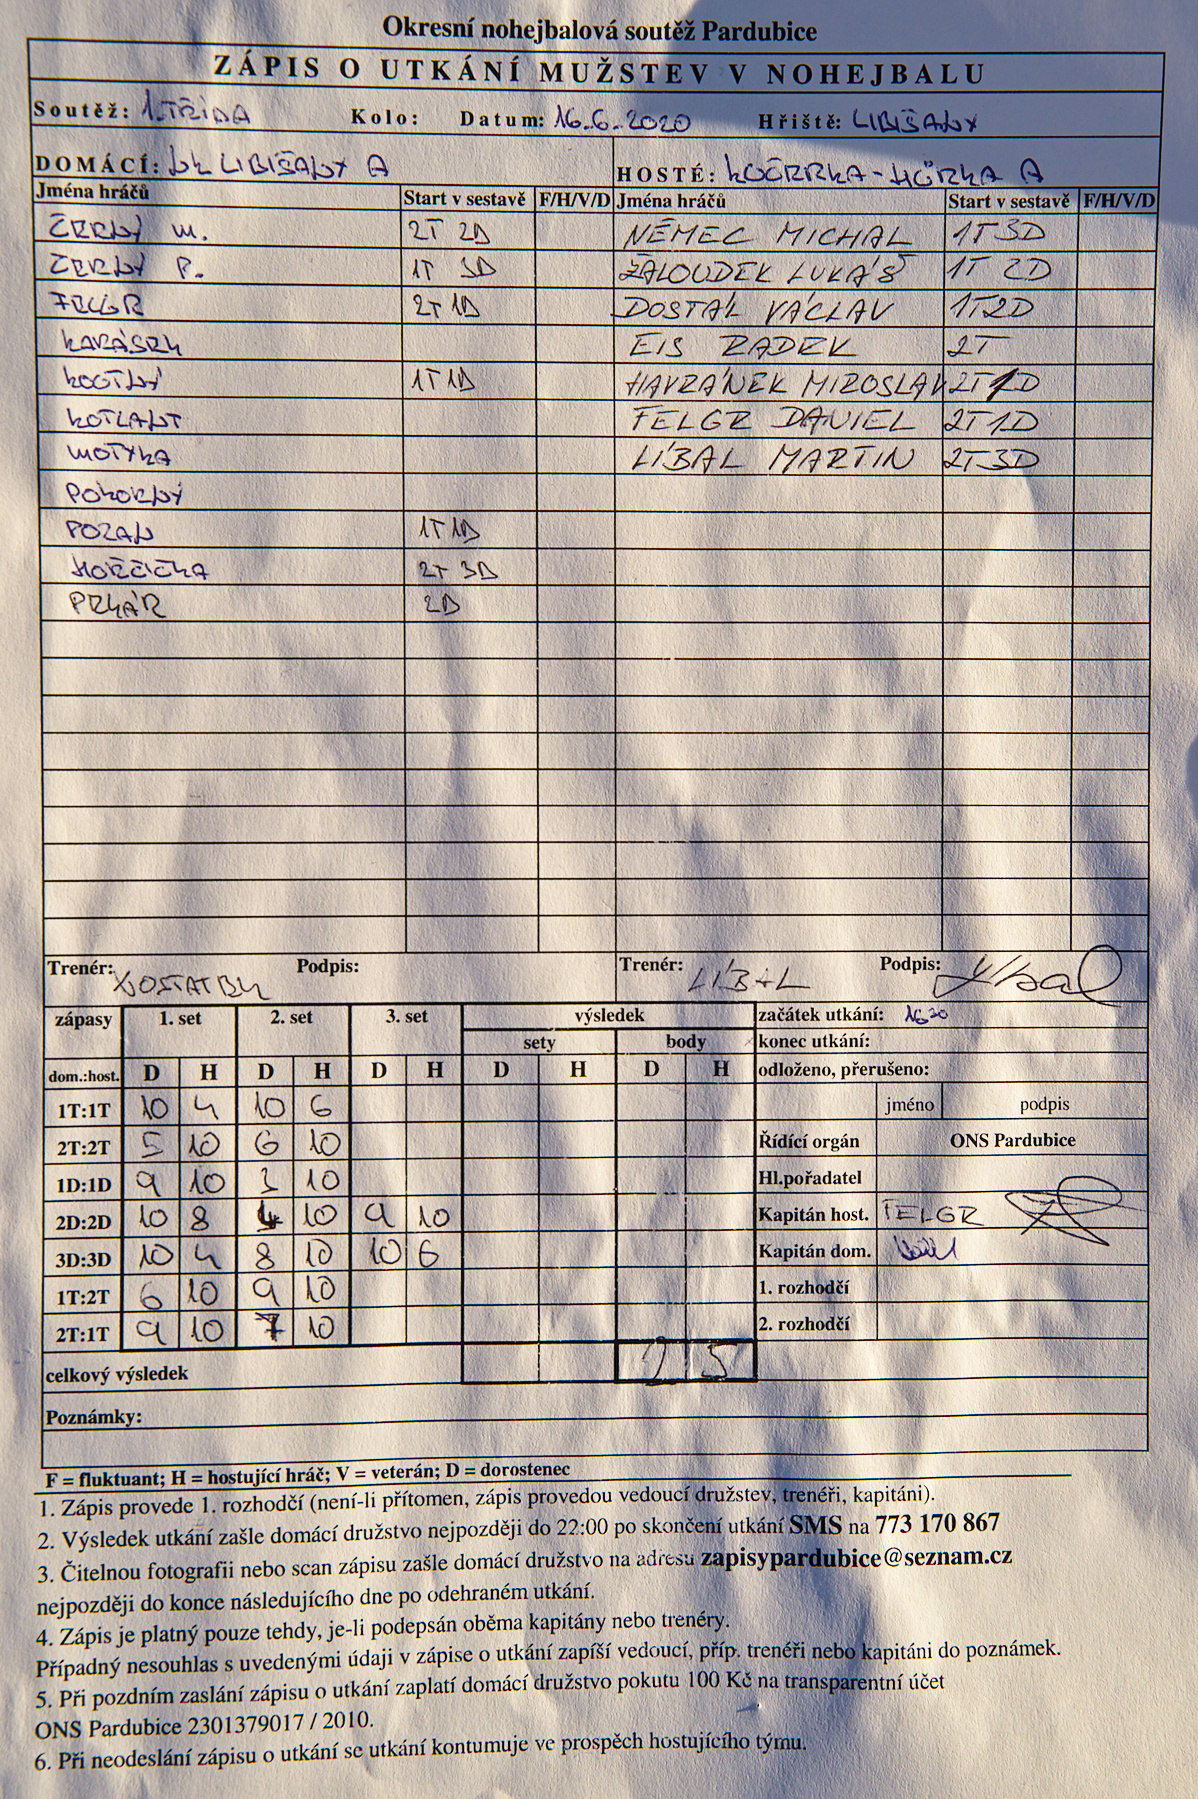 Okresní nohejbalová soutěž Pardubice
ZÁPIS O UTKÁNÍ MUŽSTEV V NOHEJBALU
Soutěž: 1.TŘÍDA Kolo: Datum: 16.6.2020 Hřiště: LIBIŠANY
DOMÁCÍ: NK LIBIŠANY A HOSTÉ: KOČERKA-HŮRKA A
Jména hráčů Start v sestavě F/H/V/D Jména hráčů Start v sestavě F/H/V/D
ČERNÝ M. 2T 2D NĚMEC MICHAL 1T 3D
ČERNÝ P. 1T 3D ŽALOUDEK LUKÁŠ 1T 2D
FELGR 2T 1D DOSTÁL VÁCLAV 1T2D
KARÁSEK EIS RADEK 2T
1T 1D HAVRÁNEK MIROSLAV 2T 1D
KOTLANT FELGR DANIEL 2T 1D
MOTYKA LÍBAL MARTIN 2T 3D
POKORNÝ
POZAN 1T 1D
HOŘČIČKA 2T 3D
PEKÁR 2D
Trenér: Podpis: Trenér: LÍBAL Podpis:
zápasy 1. set 2. set 3. set výsledek začátek utkání: 1630
sety body konec utkání:
dom.:host. D H D H D H D H D H odloženo, přerušeno:
jméno podpis
1T:1T 10 4 10 6
2T:2T 5 10 6 10 Řídící orgán ONS Pardubice
1D:1D 9 10 3 10 Hl.pořadatel
2D:2D 10 8 4 10 9 10 Kapitán host. FELGR
3D:3D 10 4 8 10 10 6 Kapitán dom.
1T:2T 6 10 9 10 1. rozhodčí
2T:1T 9 10 7 10 2. rozhodčí
celkový výsledek 2 5
Poznámky:
F = fluktuant; H = hostující hráč; V = veterán; D = dorostenec
1. Zápis provede 1. rozhodčí (není-li přítomen, zápis provedou vedoucí družstev, trenéři, kapitáni).
2. Výsledek utkání zašle domácí družstvo nejpozději do 22:00 po skončení utkání SMS na 773 170 867
3. Čitelnou fotografii nebo scan zápisu zašle domácí družstvo na adresu zapisypardubice@seznam.cz
nejpozději do konce následujícího dne po odehraném utkání.
4. Zápis je platný pouze tehdy, je-li podepsán oběma kapitány nebo trenéry.
Případný nesouhlas s uvedenými údaji v zápise o utkání zapíší vedoucí, příp. trenéři nebo kapitáni do poznámek.
5. Při pozdním zaslání zápisu o utkání zaplatí domácí družstvo pokutu 100 Kč na transparentní účet
ONS Pardubice 2301379017 / 2010.
6. Při neodeslání zápisu o utkání se utkání kontumuje ve prospěch hostujícího týmu.